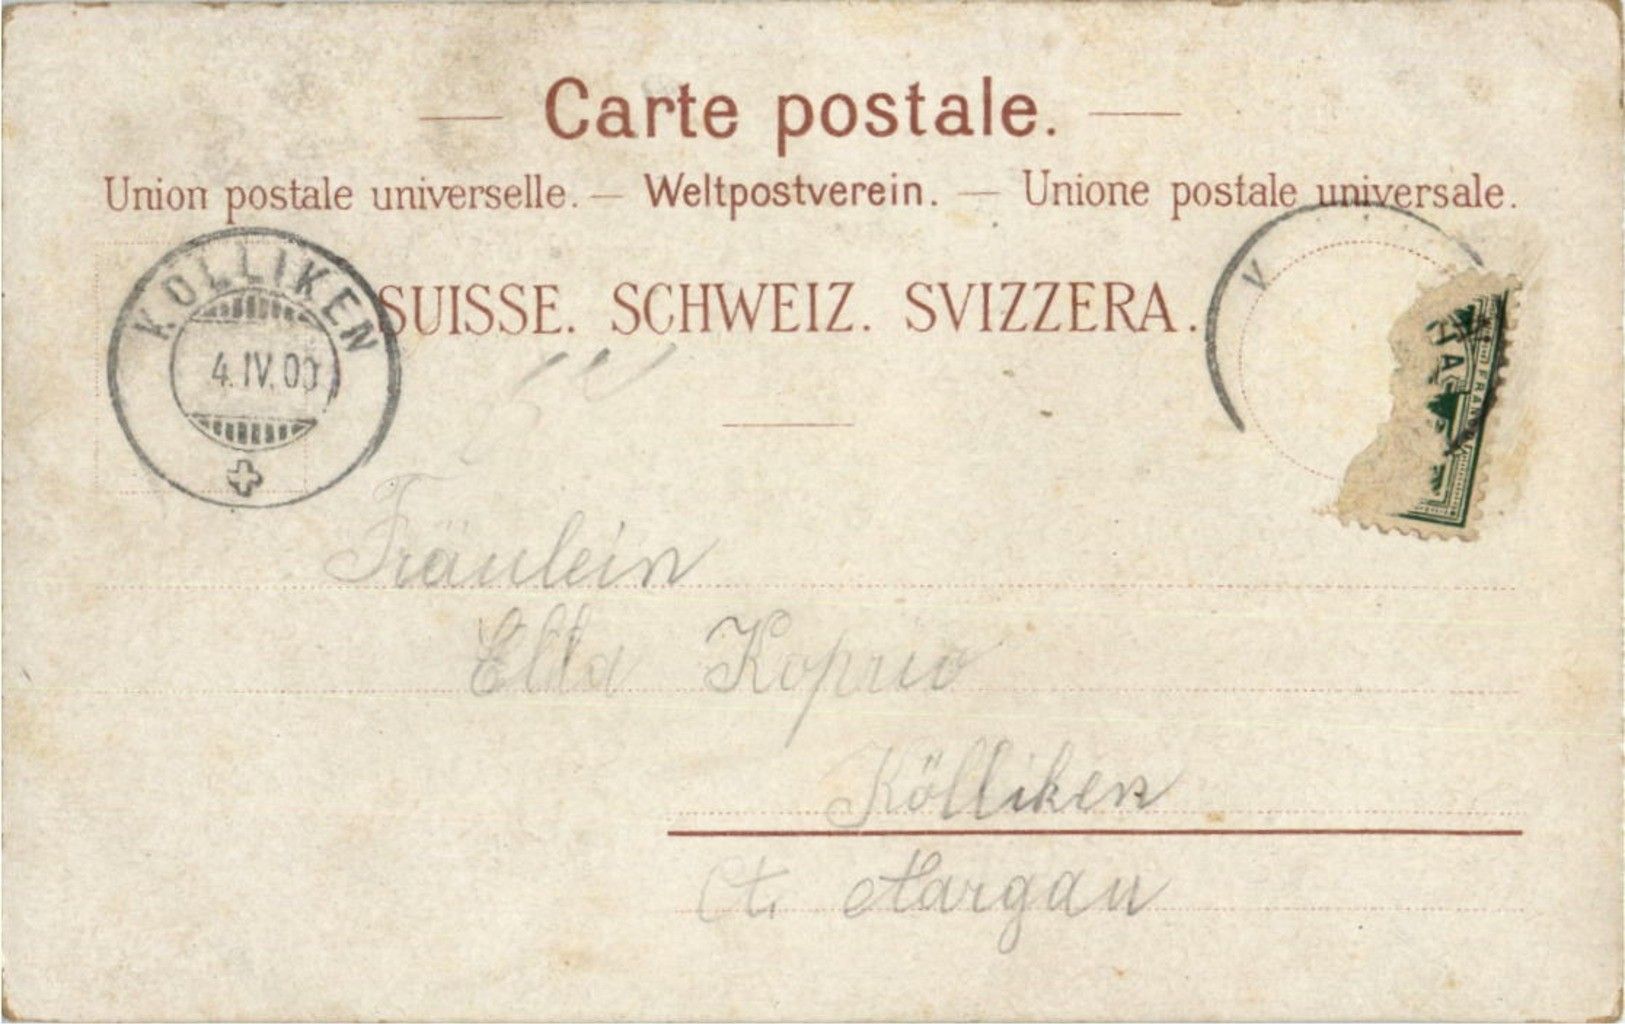 — Carte postale. —
Union postale universelle. — Weltpostverein. — Unione postale universale.
SUISSE. SCHWEIZ. SVIZZERA.
KÖLLIKEN
4.IV.00
Fräulein
Koprio
Kölliken
Ct. Aargau